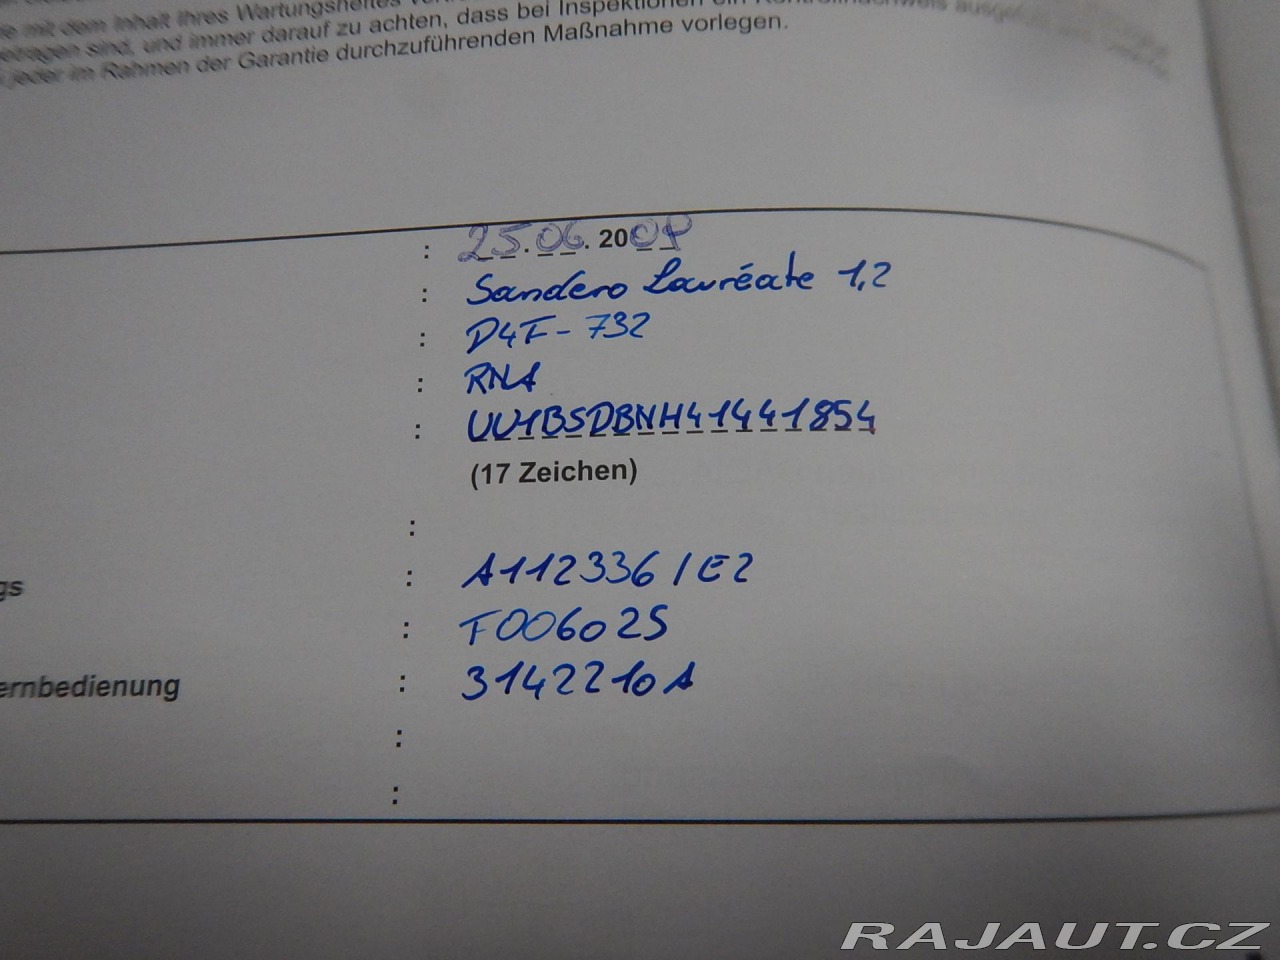 mit dem Inhalt Ihres Wartungsheftes
sind, und immer darauf zu achten, dass bei Inspektionen ein Kontrollnachweis
jeder im Rahmen der Garantie durchzuführenden Maßnahme vorlegen.
: 25.06.2009
: Sandero Lauréate 1,2
: D4F-732
: RNA
: UU1BSDBNH41441854
(17 Zeichen)
:
gs : A112336/E2
: F006025
ernbedienung : 3142210A
:
:
RAJAUT.CZ